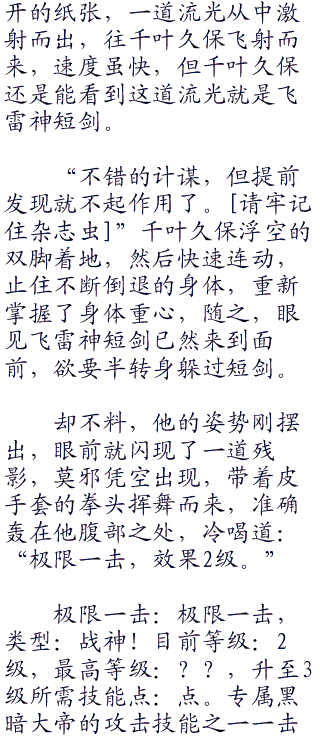 开的纸张，一道流光从中激
射而出，往千叶久保飞射而
来，速度虽快，但千叶久保
还是能看到这道流光就是飞
雷神短剑。
“不错的计谋，但提前
发现就不起作用了。[请牢记
住杂志虫]”千叶久保浮空的
双脚着地，然后快速连动，
止住不断倒退的身体，重新
掌握了身体重心，随之，眼
见飞雷神短剑已然来到面
前，欲要半转身躲过短剑。
却不料，他的姿势刚摆
出，眼前就闪现了一道残
影，莫邪凭空出现，带着皮
手套的拳头挥舞而来，准确
轰在他腹部之处，冷喝道：
“极限一击，效果2级。”
极限一击：极限一击，
类型：战神！目前等级：2
级，最高等级：？？，升至3
级所需技能点：点。专属黑
暗大帝的攻击技能之一一击